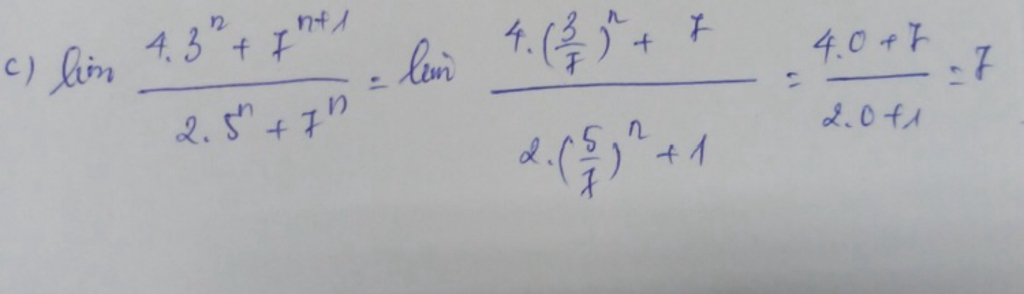 c) lim (4.3^n + 7^(n+1)) / (2.5^n + 7^n) = lim (4.(3/7)^n + 7) / (2.(5/7)^n + 1) = (4.0 + 7) / (2.0 + 1) = 7